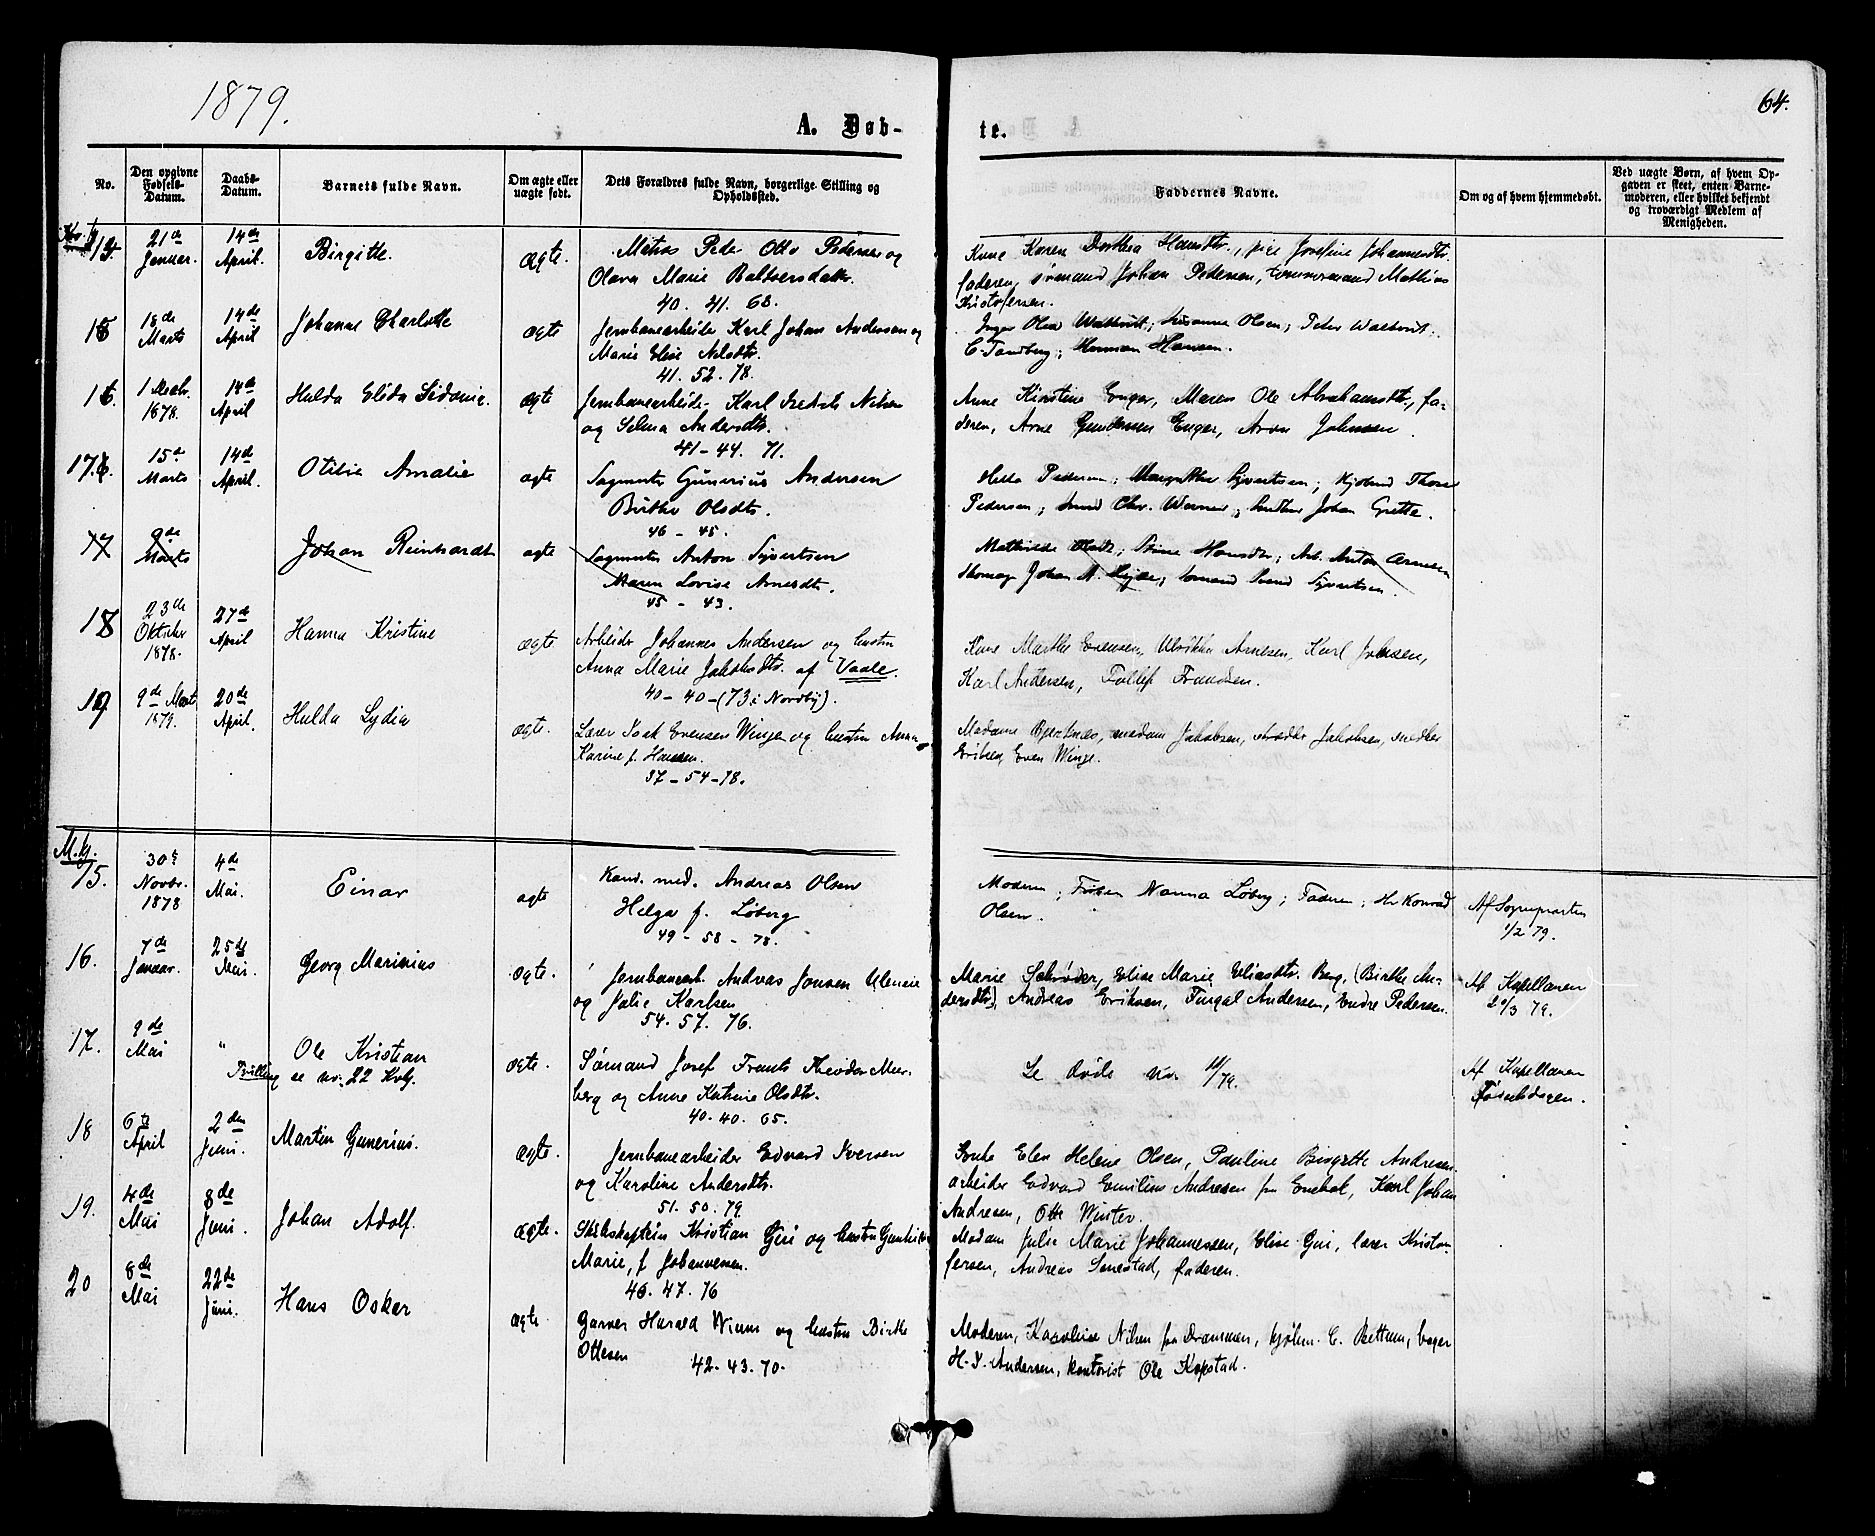 1879.
64.
A. Døb-
te.
No.
Den opgivne Fødsels-Datum.
Daabs-Datum.
Barnets fulde Navn.
Om ægte eller uægte født.
Dets Forældres fulde Navn, borgerlige Stilling og Opholdssted.
Faddernes Navne.
Om og af hvem hjemmedøbt.
Ved uægte Børn, af hvem Op-
gaven er skeet, enten Barne-
moderen, eller hvilket bekjendt
og troværdigt Medlem af
Menigheden.
14. 21de Januar. 14de April. Birgitte. ægte. Matros Peder Otto Pedersen og
Olava Marie
40. 41. 68.
Kone Karen Dorthea Hansdtr., pige Josefine Johannesdtr.
faderen, sømand Johan Pedersen, tømmermand Mathias
Kristofersen.
15 18de Marts 14de April Johanne Charlotte ægte Jernbanearbeider Karl Johan Andersen og
Marie Elise Nilsdtr.
41. 52. 78.
Inger Olea Susanne Olsen; Peter
C. Tandberg; Herman Hansen.
16. 1 Decbr. 1878. 14de April Hulda Elida Sidonie. ægte Jernbanearbeider Karl Fredrik Nilsen
og Selma Andersdtr.
41-44. 71.
Anne Kirstine Enger, Maren Ole Abrahamsdtr., fa-
deren, Arne Gundersen Enger, Aron Johnsen
17. 15de Marts 14de April. Otilie Amalie ægte Sagmester Gunerius Andersen
Birthe Olsdtr.
46 - 45.
Hilda Pedersen; Margrethe Syvertsen; Thom
Pedersen; Chr. Werner; Johan Grette.
17 9de Marts Johan Reinhardt ægte Sagmester Anton Syvertsen
Maren Lovise Arnesdtr.
45 - 43.
Mathilde Stine Hansdtr; Arb. Anton Arnesen
Johan A. Sømand Svend Syvertsen.
18 23de Oktober 1878. 27de April Hanna Kristine ægte Arbeider Johannes Andersen og hustru
Anna Marie Jakobsdtr. af Vaale.
40 - 40 - (73 i Nordby).
Kone Marthe Evensen, Ulrikke Arnesen, Karl Johnsen,
Karl Andersen, Tollef Frandsen.
19 9de Marts 1879. 20de April. Hulda Lydia ægte. Lærer Isak Evensen Winge og hustru Anna
Karine f. Hansen.
37 - 54 - 78.
Madame Bjertnæs, madam Jakobsen, Jakobsen, snedker
Eriksen, Even Winge.
M.kj.
15. 30te Novbr. 1878 4de Mai. Einar ægte Kand. med. Andreas Olsen
Helga f. Løberg
49 - 58 - 78.
Moderen; Frøken Nanna Løberg; Faderen; Hr Konrad
Olsen.
Af Sognepresten
1/2 79.
16. 7de Januar. 25de Mai. Georg Marinius ægte. Jernbanearb. Andreas Jonsen
og Julie Karlsen
54. 57. 76.
Marie Schrøder, Elise Marie Eliasdtr. Berg, (Birthe An-
dersdtr), Andreas Eriksen, Fingal Andersen, Endre Pedersen.
Af Kapellanen
20/3 79.
17. 9de Mai " Ole Kristian
Tvilling se no. 22 Kvkj.
ægte. Sømand Josef Frants Theodor Meer-
berg og Anne Katrine Olsdtr.
40. 40. 65.
Se døde No 11/79.
Af Kapellanen
Fødselsdagen.
18 6te April 2den Juni. Martin Gunerius. ægte. Jernbanearbeider Edvard Iversen
og Karoline Andersdtr.
51. 50. 79.
Enke Elen Helene Olsen, Pauline Birgitte Andresen
arbeider Edvard Emilius Andresen fra Enebak, Karl Johan
Andresen, Otto Winter.
19. 4de Mai 8de Juni. Johan Adolf. ægte. Skibskaptein Kristian Gui og hustru Gunhilde
Marie, f. Johannesen.
46. 47. 76
Madam Julie Marie Johannessen, Elise Gui, lærer Kristof-
fersen, Andreas Senestad, faderen.
20 8de Mai 22de Juni. Hans Oskar ægte. Garver Harald Wium og hustru Birthe
Ottesen
42. 43. 70.
Moderen, Karoline Nilsen fra Drammen, kjøbm. C. Bettum, bager
H. I. Andersen, kontorist Ole Kopstad.